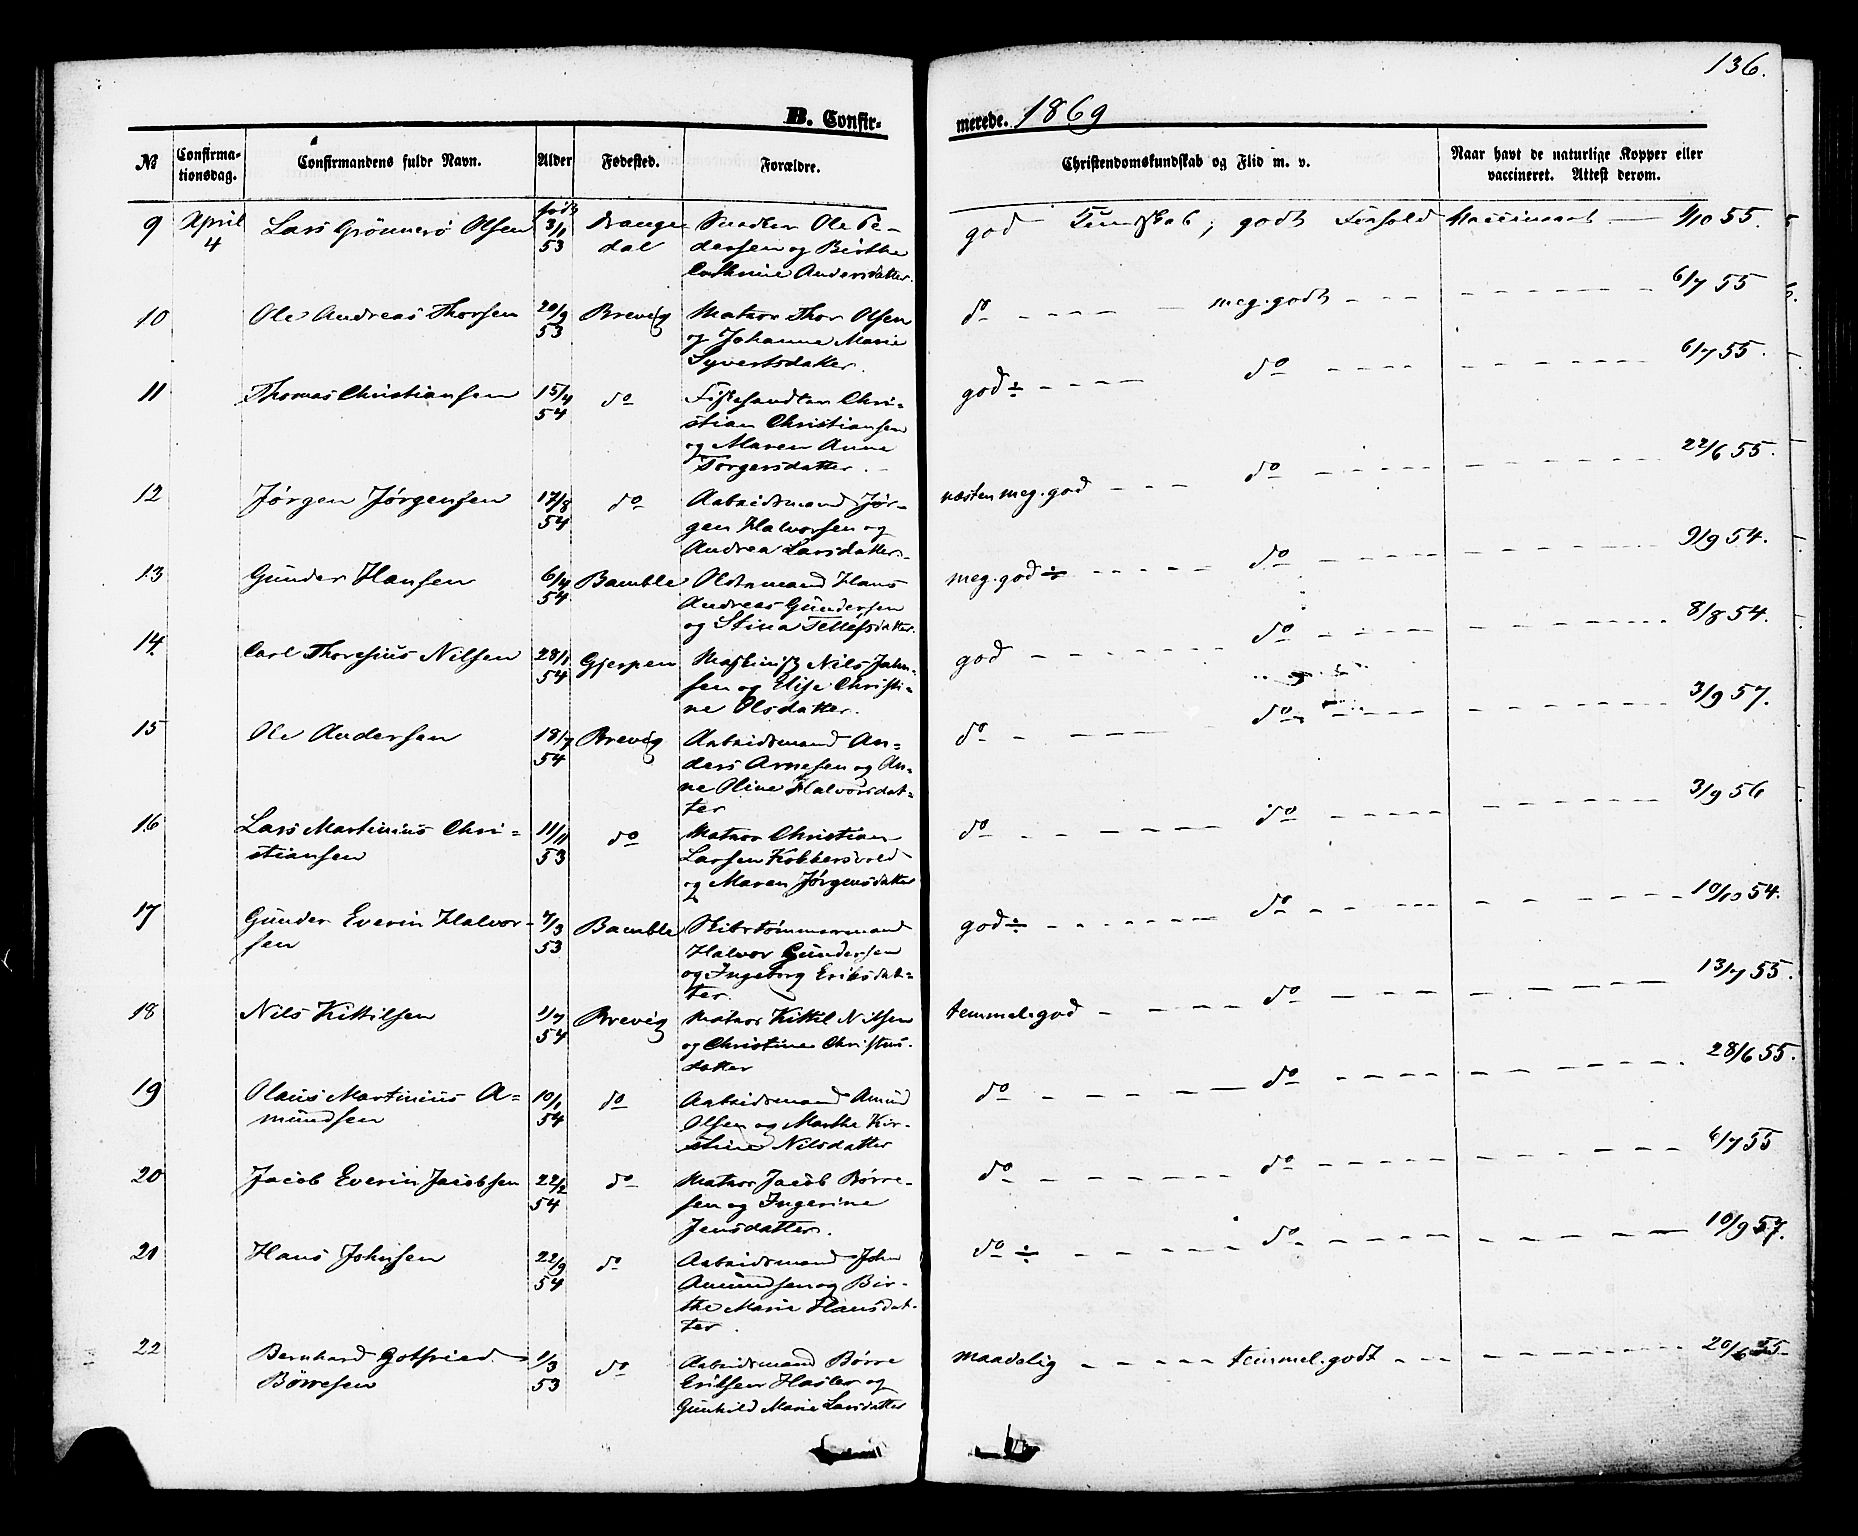 136.
B. Confir-
merede. 1869
№
Confirma-
tionsdag.
Confirmandens fulde Navn.
Alder
Fødested.
Forældre.
Christendomskundskab og Flid m. v.
Naar havt de naturlige Kopper eller
vaccineret. Attest derom.
9 April 4 Lars Grönnerö Olsen født 3/11 53 Drange
dal
Ole Pe-
dersen og Birthe
Cathrine Andersdatter.
god Kundskab; godt Forhold Vaccineret 1/10 55.
10 Ole Andreas Thorsen 20/9 53 Brevig
Matros Thor Olsen
og Johanne Marie
Syvertsdatter.
do meg. godt 6/7 55
11 Thomas Christiansen 15/4 54 do
Fiskehandler Chri-
stian Christiansen
og Maren Anne
Torgersdatter.
god ÷ do 6/7 55.
12 Jörgen Jörgensen 17/8 54 do
Arbeidsmand Jör-
gen Halvorsen og
Andrea Larsdatter.
næsten meg. god do 22/6 55.
13 Gunder Hansen 6/4 54. Bamble
Hans
Andreas Gundersen
og Stina Tellefsdatter.
meg. god ÷ do 9/9 54.
14. Carl Thoresius Nilsen 28/1 54 Gjerpen
Maskinist Nils John-
sen og Elise Christi-
ne Olsdatter.
god do 8/8 54.
15 Ole Andersen 18/7 54 Brevig
Arbeidsmand An-
ders Arnesen og An-
ne Oline Halvorsdat-
ter
do do 3/9 57.
16 Lars Martinius Chri-
stiansen 11/11 53 do
Matros Christian
Larsen Kobbersvold
og Maren Jörgensdatter
do do 3/9 56
17 Gunder Everin Halvor-
sen 7/3 53 Bamble
Skibstömmermand
Halvor Gundersen
og Ingeborg Eriksdat-
ter.
god ÷ do 10/10 54.
18 Nils Kittilsen 2/7 54 Brevig
Matros Kittil Nilsen
og Christine Christens-
datter
temmel. god do 13/7 55.
19 Olaus Martinius A-
mundsen 10/1 54 do
Arbeidsmand Amund
Olsen og Marthe Kir-
stine Nilsdatter
do do 28/6 55.
20 Jacob Everin Jacobsen 22/2 54 do
Matros Jacob Börre-
sen og Ingerine
Jensdatter.
do do 6/7 55
21 Hans Johnsen 22/9 54 do
Arbeidsmand John
Amundsen og Bir-
the Marie Hansdat-
ter.
do ÷ do 10/9 57.
22 Bernhard Gotfried
Börresen 1/3 53 do
Arbeidsmand Börre
Eriksen Hasler og
Gunhild Marie Larsdatter
maadelig temmel. godt 20/6 55